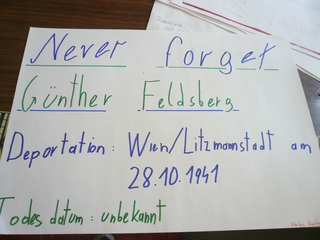 Never forget
Günther Feldsberg
Deportation: Wien/Litzmannstadt am
28.10.1941
Todesdatum: unbekannt